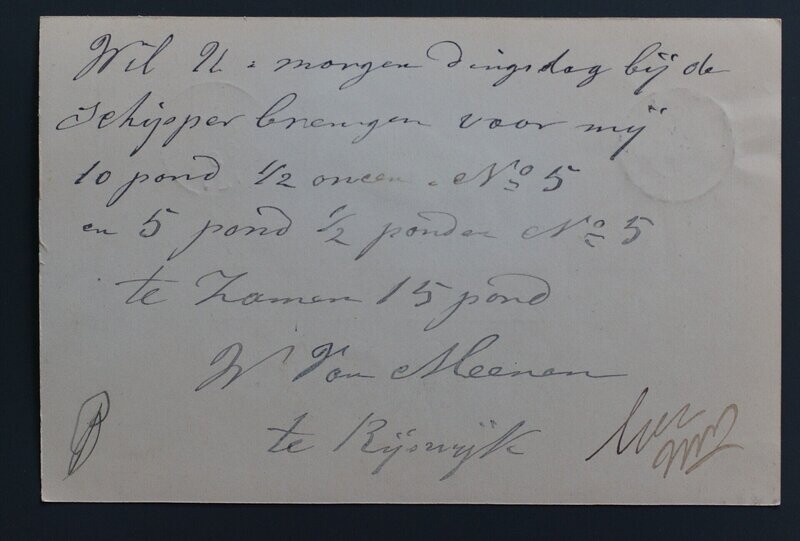 Wil U morgen Dingsdag bij de
Schipper brengen voor mij
10 pond 1/2 oncen No 5
en 5 pond 1/2 ponden No 5
te Zamen 15 pond
W Van Meenen
te Rijswijk